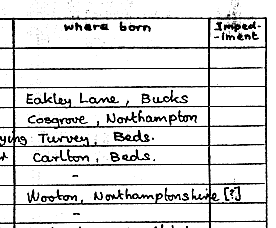 where born Imped-
-iment
Eakley Lane, Bucks
Cosgrove, Northampton
ying Turvey, Beds.
Carlton, Beds.
-
Wooton, Northamptonshire [?]
-